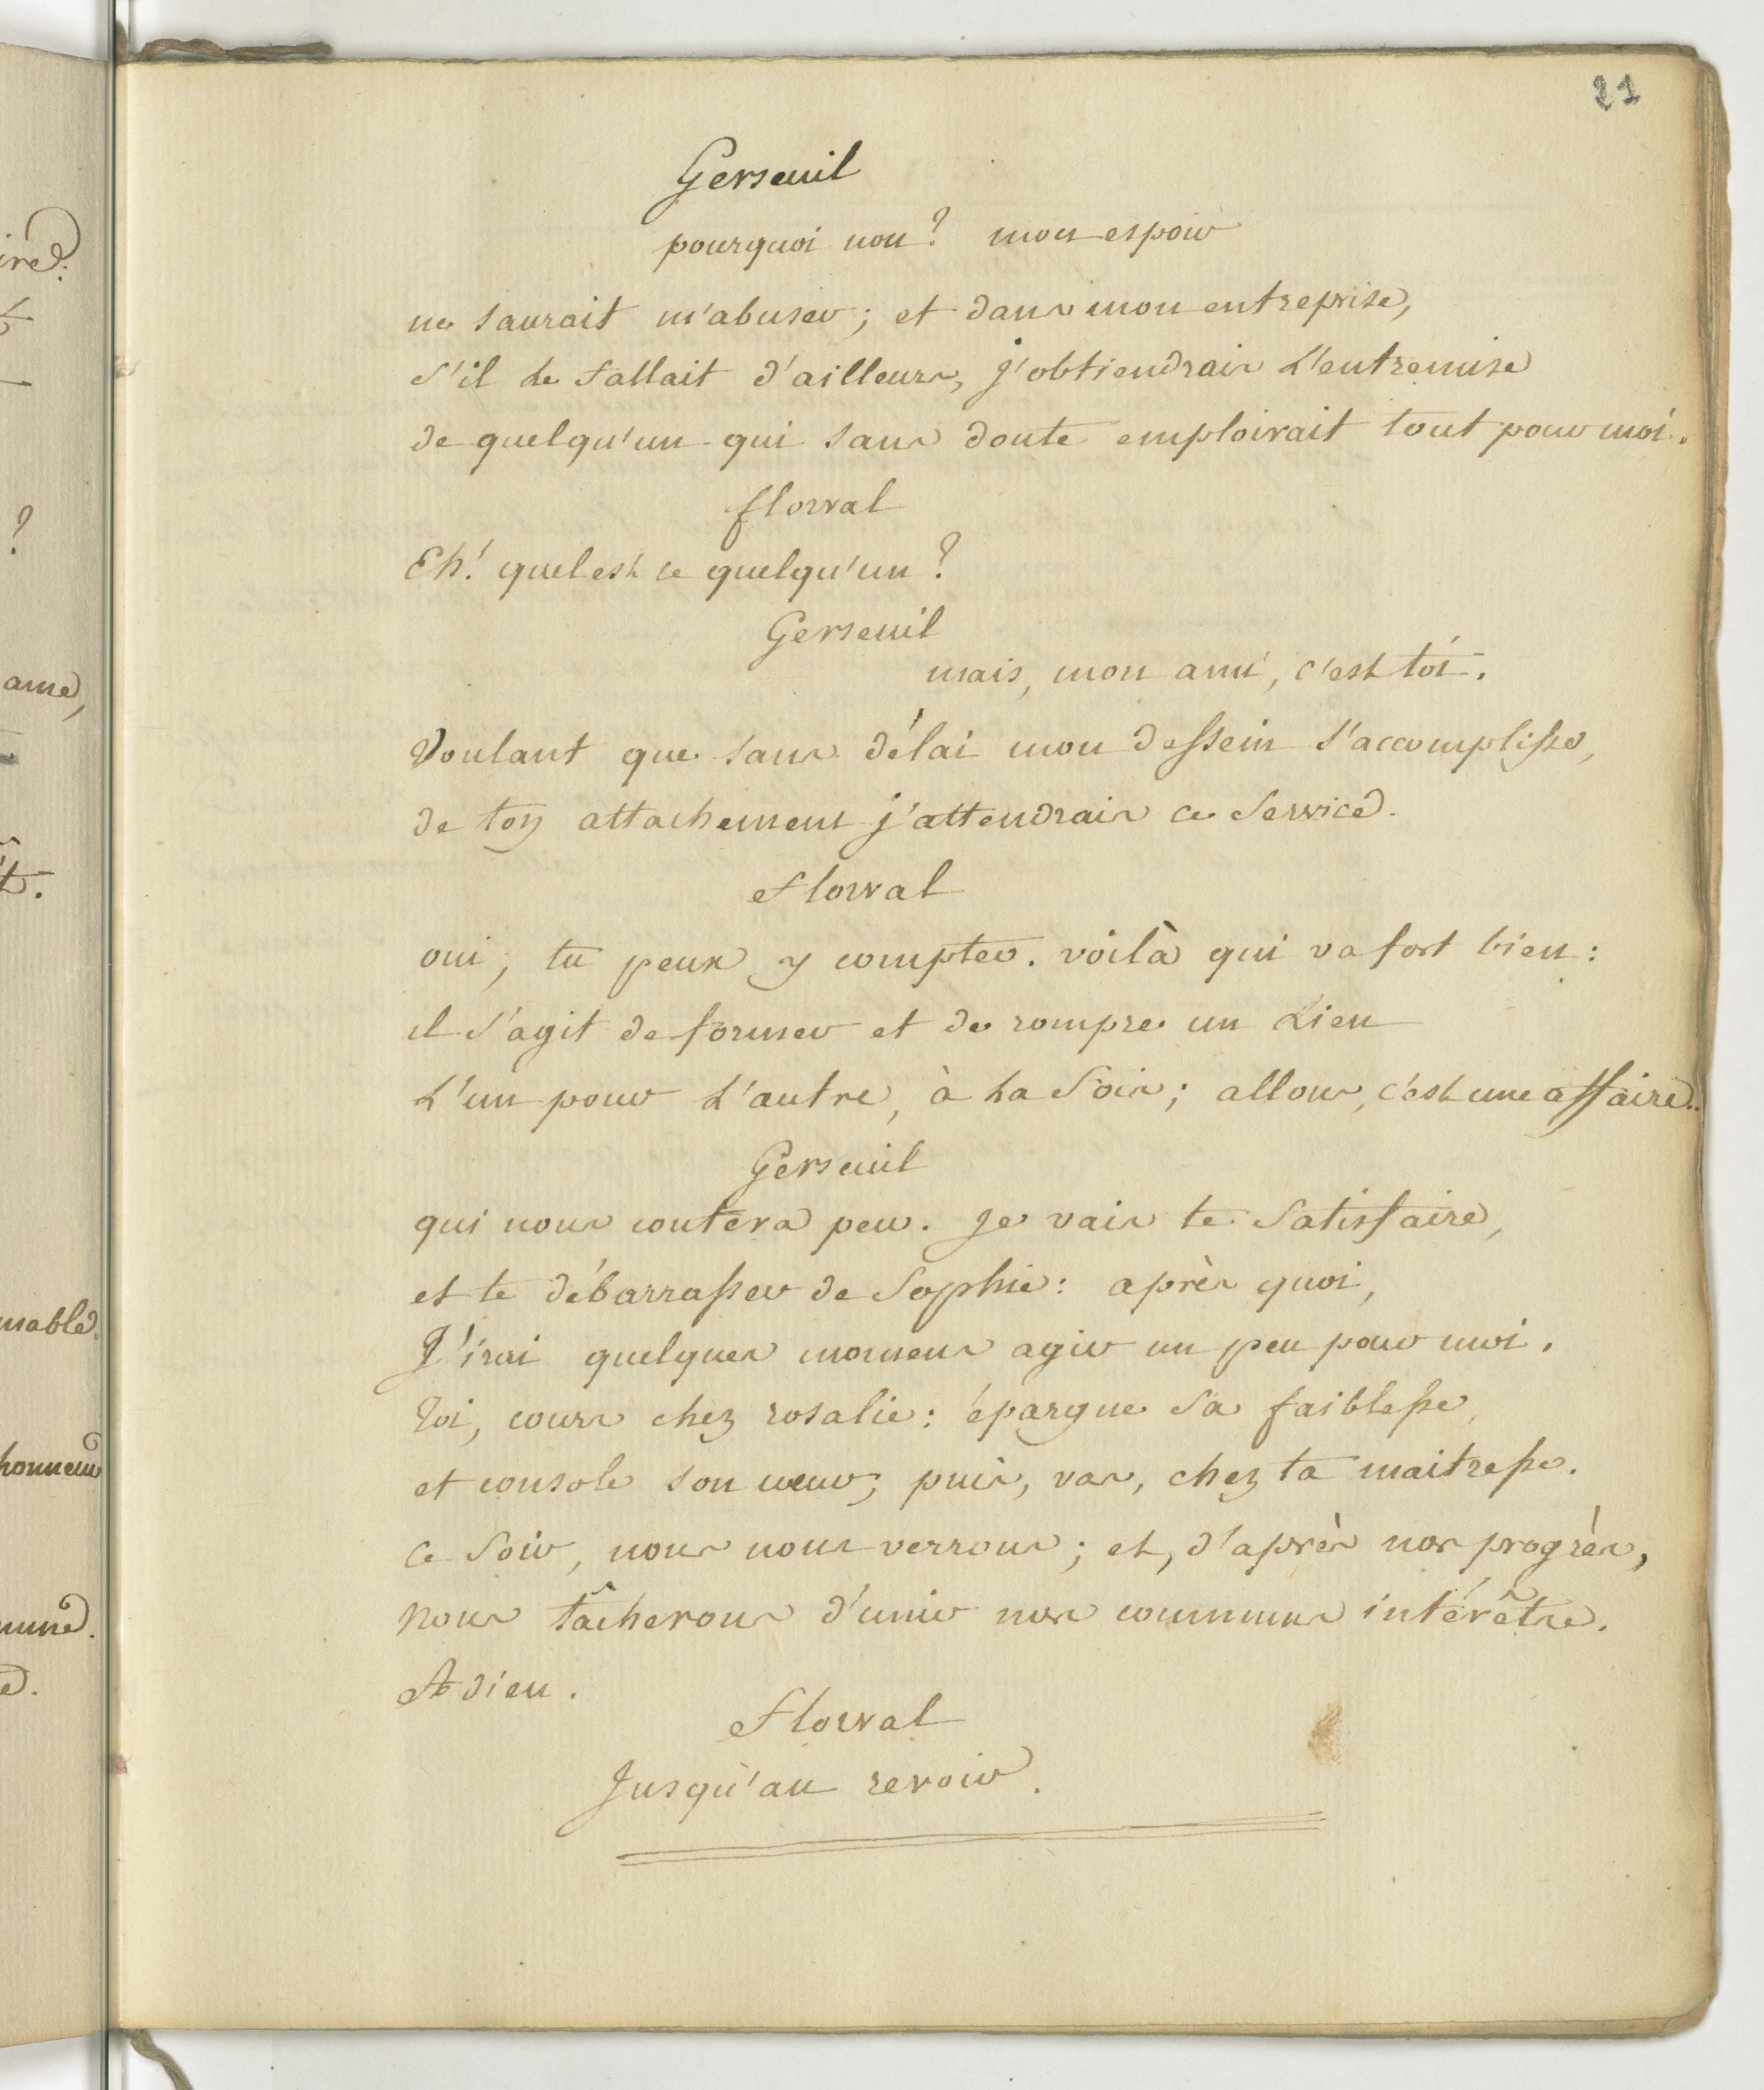 21
Gerseuil
pourquoi non? mon espoir
ne saurait m'abuser; et dans mon entreprise,
s'il le fallait d'ailleurs, j'obtiendrais l'entremise
de quelqu'un qui sans doute emploirait tout pour moi.
florval
Eh! quel est ce quelqu'un?
Gerseuil
mais, mon ami, c'est toi.
Voulant que sans délai mon dessein s'accomplisse,
de ton attachement j'attendrais ce service.
florval
oui, tu peux y compter. voilà qui va fort bien:
il s'agit de former et de rompre un lien
l'un pour l'autre, à la fois; allons, c'est une affaire..
Gerseuil
qui nous coutera peu. Je vais te satisfaire,
et te débarrasser de Sophie: après quoi,
J'irai quelques momens agir un peu pour moi.
Toi, cours chez rosalie: épargne sa faiblesse,
et console son cœur; puis, vas, chez ta maitresse.
ce soir, nous nous verrons; et, d'après nos progrès,
nous tâcherons d'unir nos communs intérêts.
Adieu.
florval
Jusqu'au revoir.
ire:
?
ame,
mable.
honneur
mune.